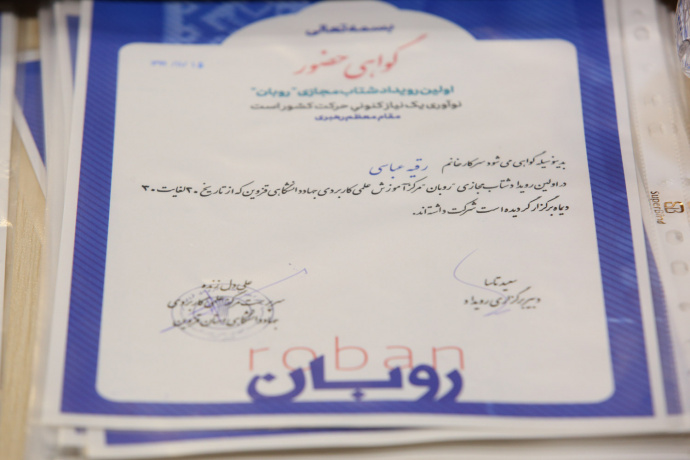 بسمه تعالی
گواهی حضور
اولین رویداد شتاب مجازی "روبان"
نوآوری یک نیاز کنونی حرکت کشور است
مقام معظم رهبری
بدینوسیله گواهی می شود سرکار خانم رقیه عباسی
در اولین رویداد شتاب مجازی روبان مرکز آموزش علمی کاربردی جهاد دانشگاهی قزوین که از تاریخ ۲۰ لغایت ۳۰
دیماه برگزار گردیده است شرکت داشته‌اند.
سعید تاسا
دبیر برگزاری رویداد
علی دل زنده
سرپرست مرکز علمی کاربردی
جهاد دانشگاهی استان قزوین
roban
روبان
Superbind